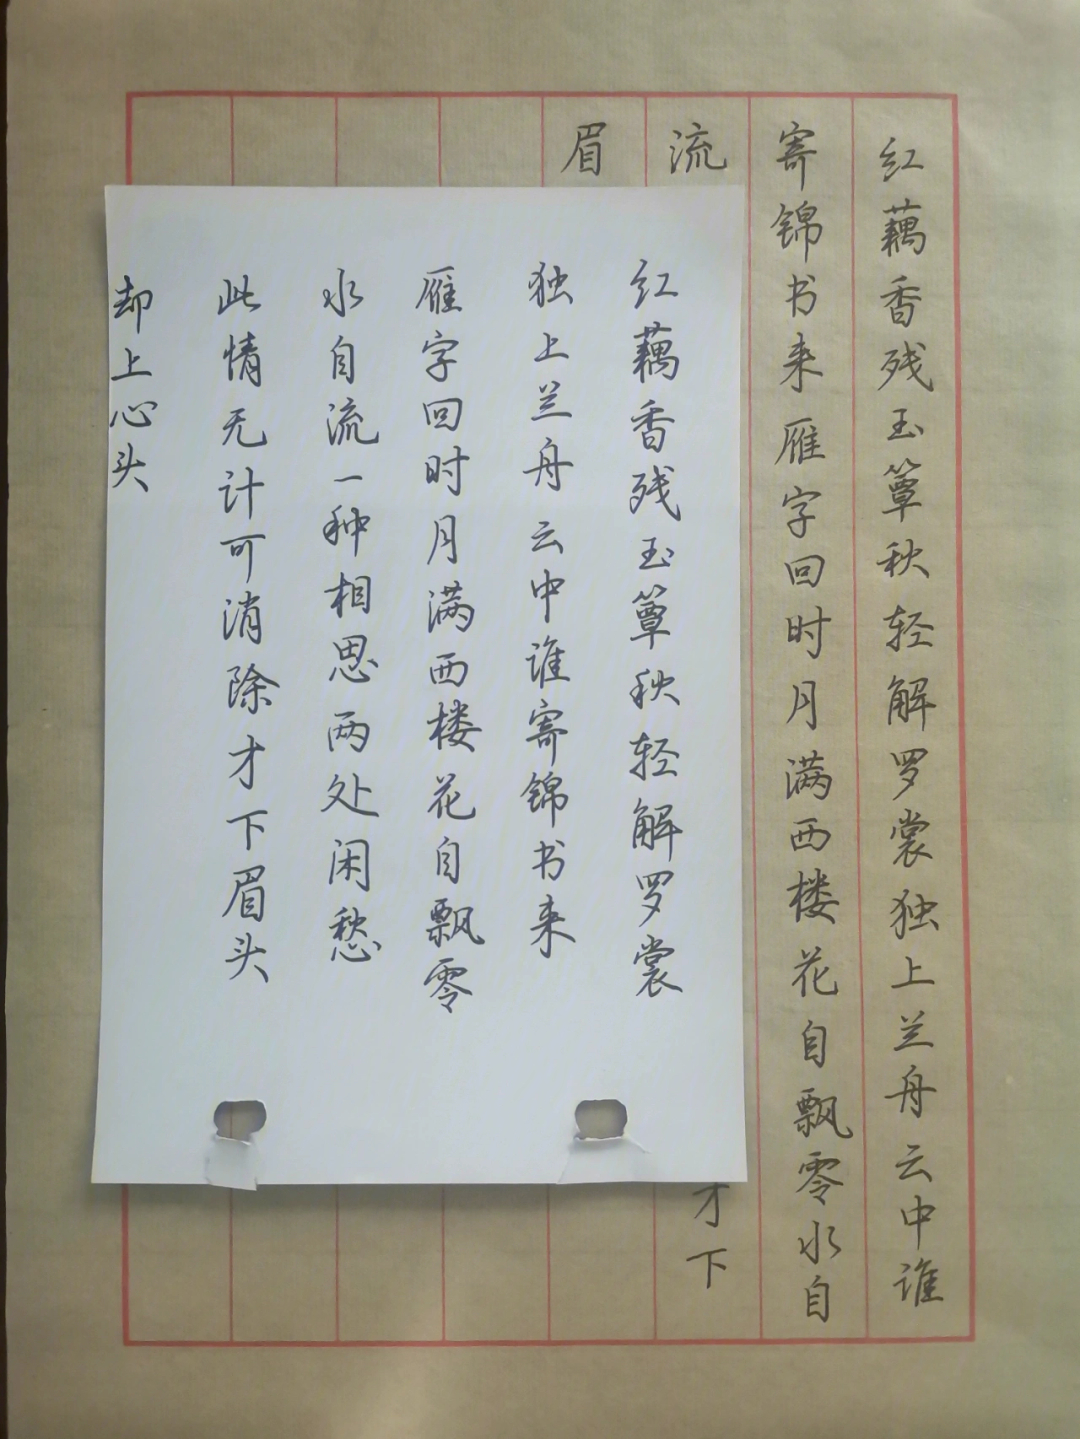 红藕香残玉簟秋轻解罗裳独上兰舟云中谁
寄锦书来雁字回时月满西楼花自飘零水自
流
才下
眉
红藕香残玉簟秋轻解罗裳
独上兰舟云中谁寄锦书来
雁字回时月满西楼花自飘零
水自流一种相思两处闲愁
此情无计可消除才下眉头
却上心头